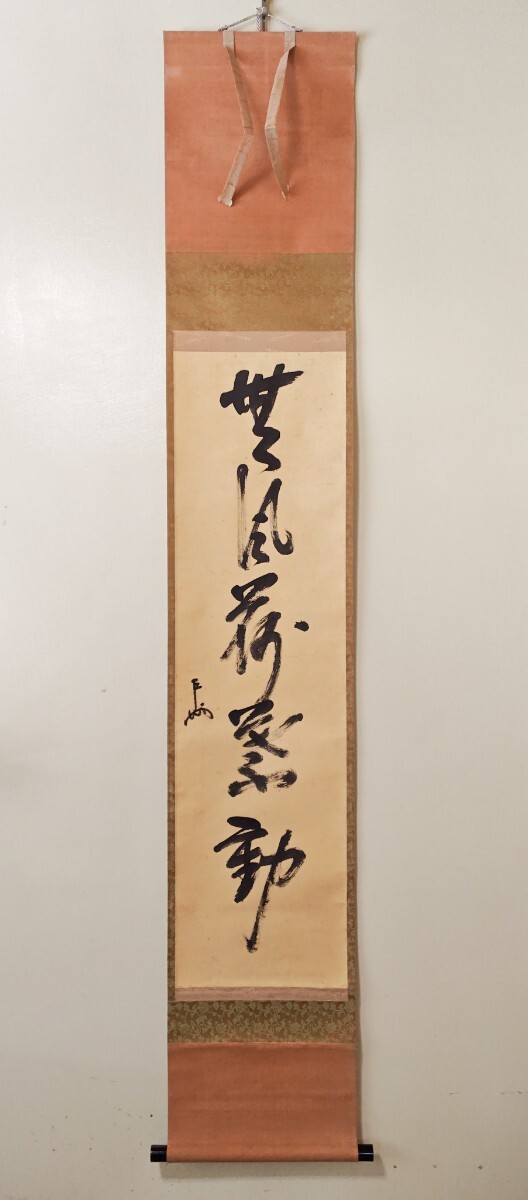 無風荷葉動